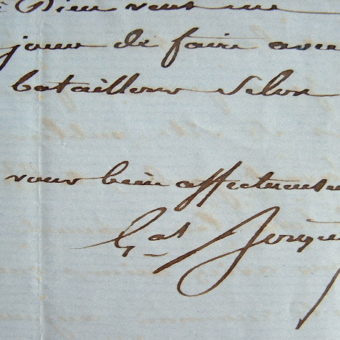 Dieu veut me
jour de faire avec
bataillons selon
vous bien affectueuse
Gal